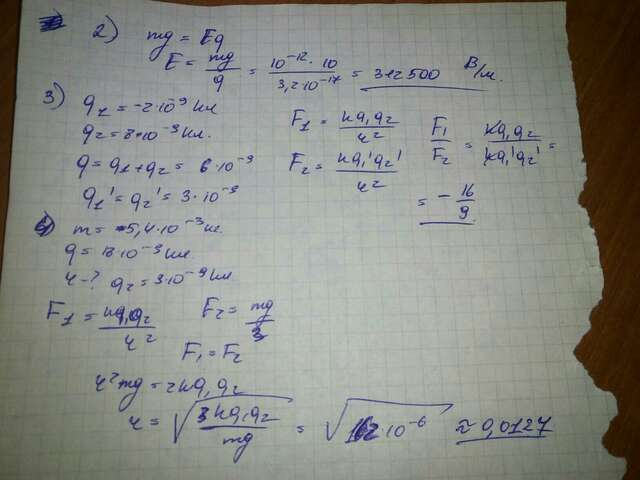 2) mg = Eq
E = mg/q = 10⁻¹²·10/3,2·10⁻¹⁷ = 312500 В/м.
3) q₁ = -2·10⁻⁹ Кл
q₂ = 8·10⁻⁹ Кл.
q = q₁+q₂ = 6·10⁻⁹
q₁' = q₂' = 3·10⁻⁹
F₁ = kq₁q₂/r²
F₂ = kq₁'q₂'/r²
F₁/F₂ = kq₁q₂/kq₁'q₂' =
= -16/9
m = 5,4·10⁻³ кг
q = 18·10⁻⁹ Кл.
r-? q₂ = 3·10⁻⁹ Кл
F₁ = kq₁q₂/r² F₂ = mg/3
F₁ = F₂
r²mg = 2kq₁q₂
r = √3kq₁q₂/mg = √162·10⁻⁶ ≈ 0,0127